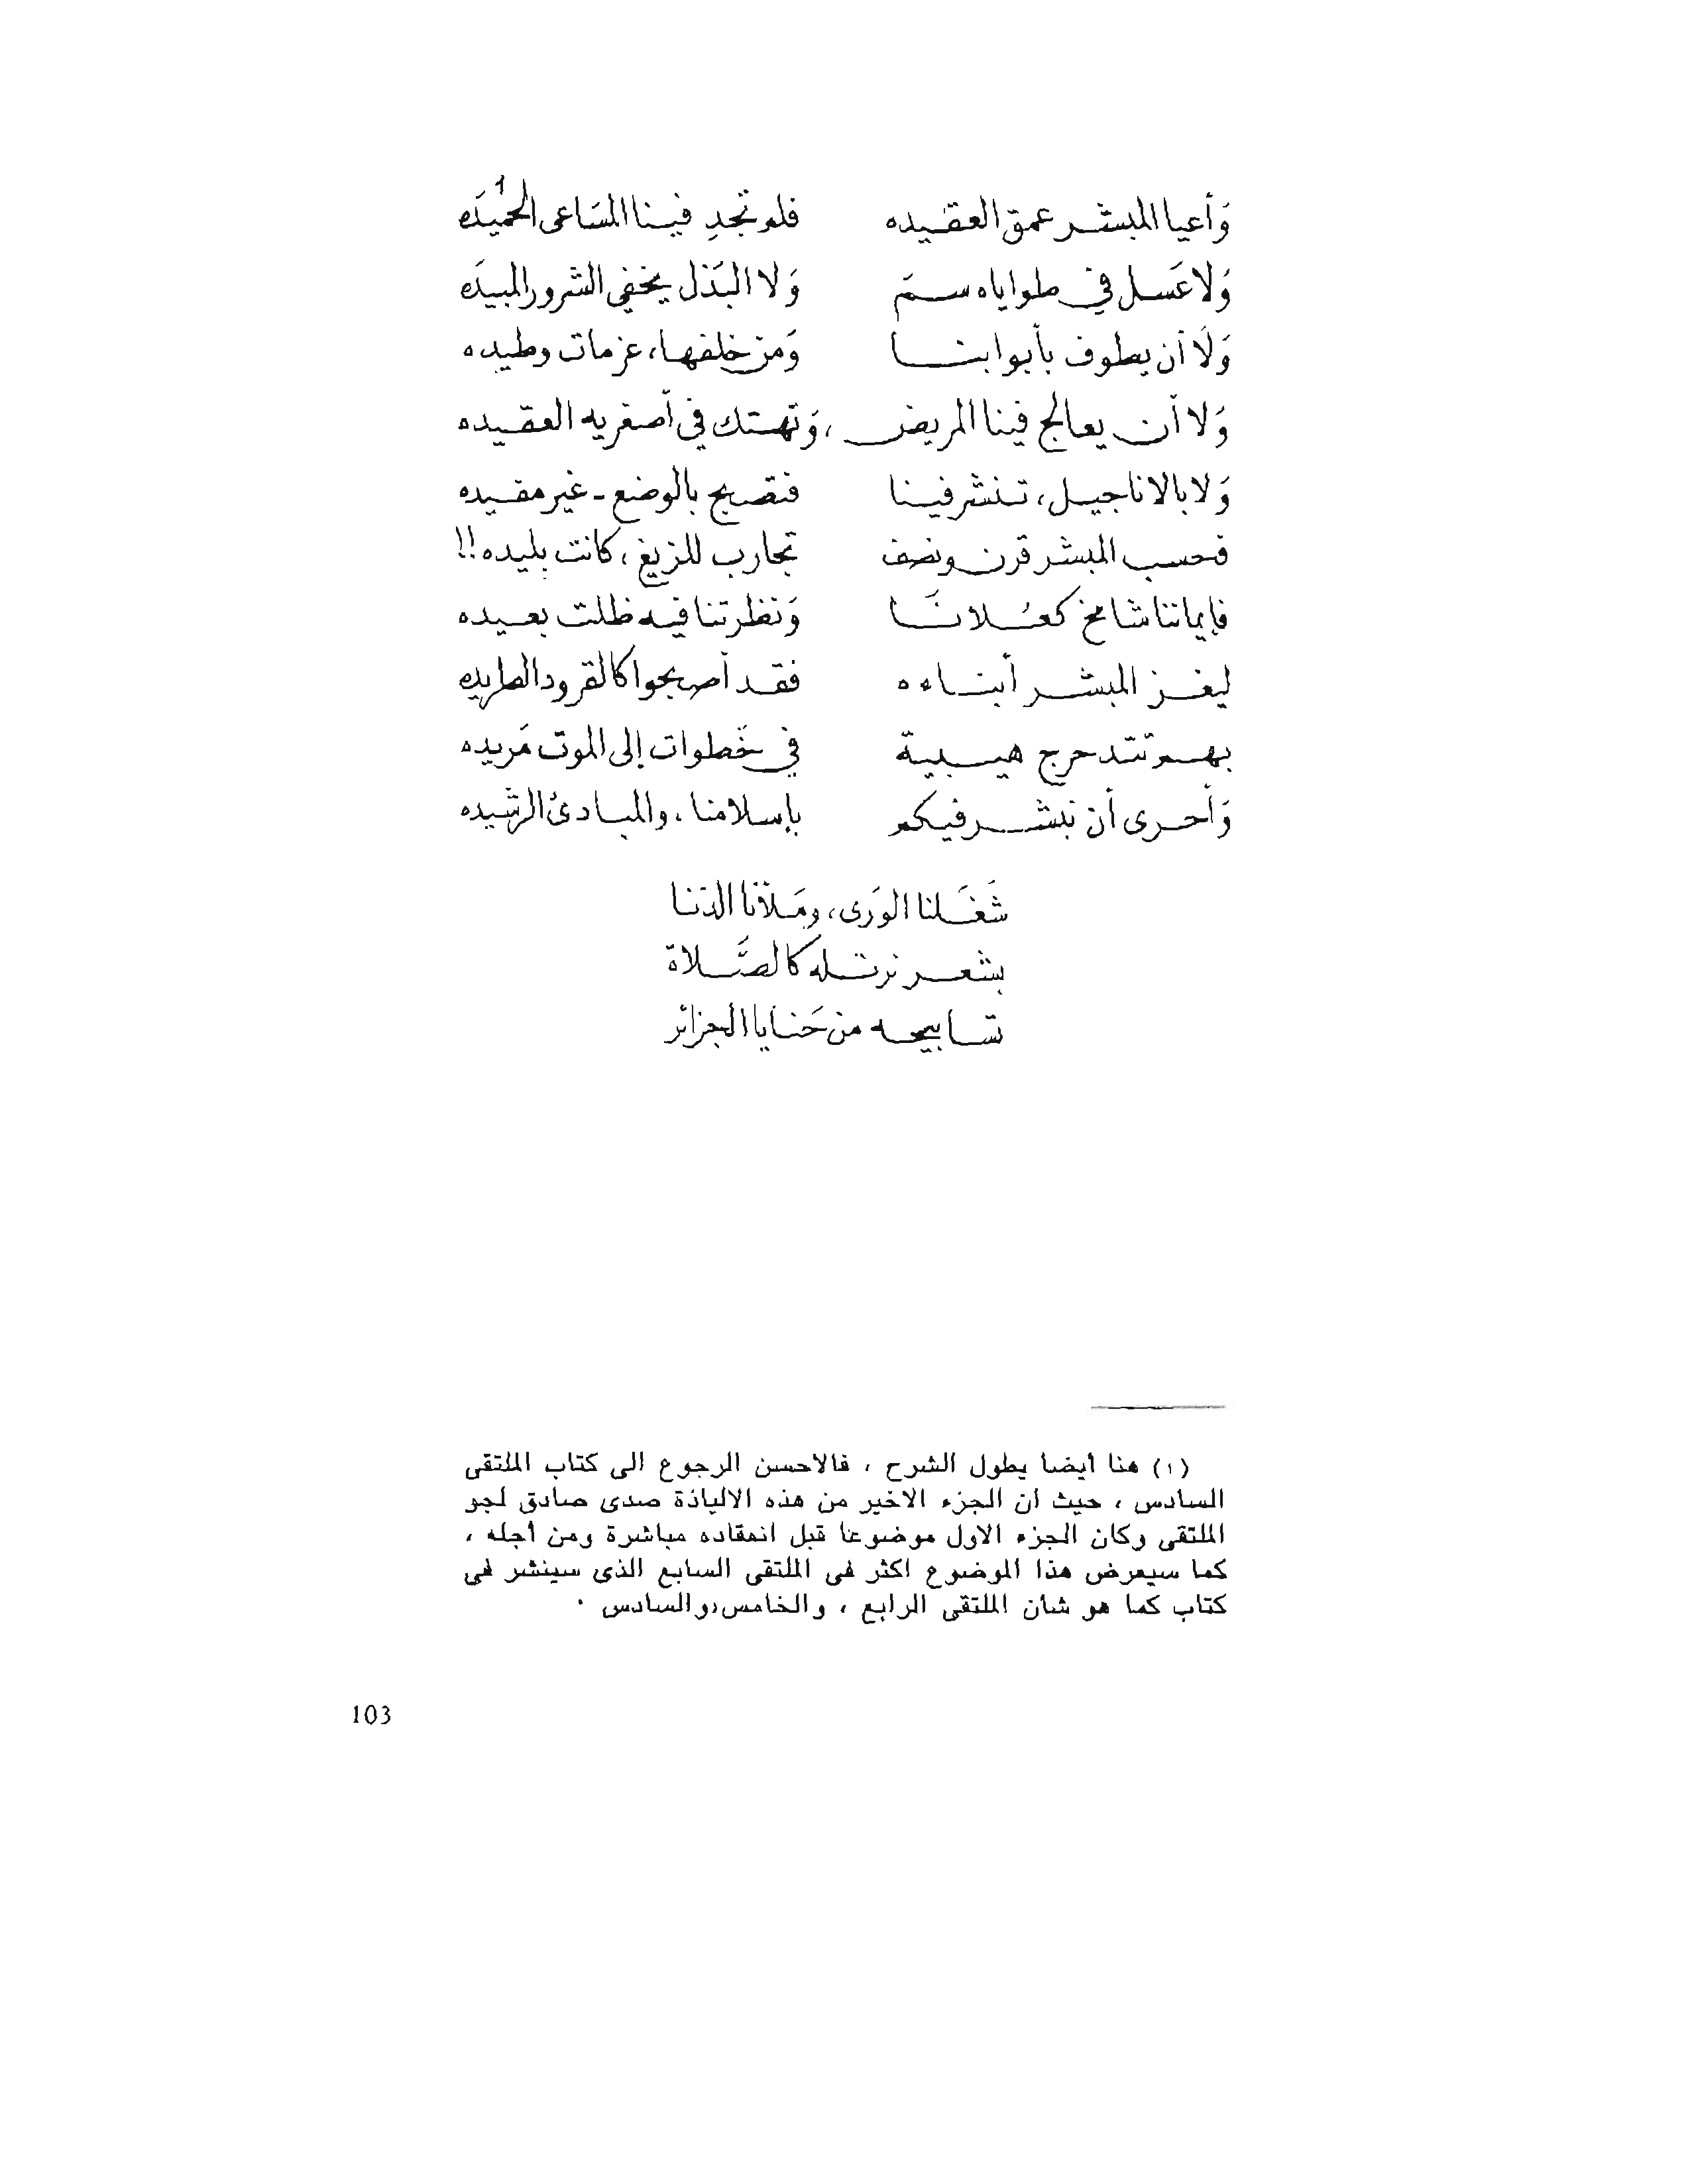 وَأعيا المبشر عمق العقيده فلم تجدِ فينا المسَاعى الحميدَه ١
وَلا عَسل في طواياه سمَ وَلا البَذل يخفي الشرور المبيدَه
وَلَا أن يطوف بأبوابنا وَمن خلفها، عزمات وطيده
وَلا أن يعالج فينا المريض، وَتهتك في أصغريه العقيده
وَلا بالاناجيل، تنشر فينا فتصبح بالوضع - غير مقيده
فحسب المبشر قرن ونصف تجارب للزيغ، كانت بليده!!
فإيماننا شامخ كعُلانَا وَنظرتنا فيه ظلت بعيده
ليغز المبشر أبناءه فقد أصبحوا كالقرود الطريده
بهم تتدحرج هيبية في خُطوات إلى الموت مَريده
وَأحرى أن نبشر فيكم بإسلامنا، والمبادئ الرشيده
شَغَلنا الورَى، ومَلأنا الدنا
بشعر نرتله كالصَّلاة
تسابيحه من حَنايا الجزائر
(١) هنا أيضا يطول الشرح ، فالاحسن الرجوع الى كتاب الملتقى
السادس ، حيث ان الجزء الاخير من هذه الالياذة صدى صادق لجو
الملتقى وكان الجزء الاول موضوعا قبل انعقاده مباشرة ومن أجله ،
كما سيعرض هذا الموضوع اكثر فى الملتقى السابع الذى سينشر فى
كتاب كما هو شان الملتقى الرابع ، والخامس، والسادس ·
103